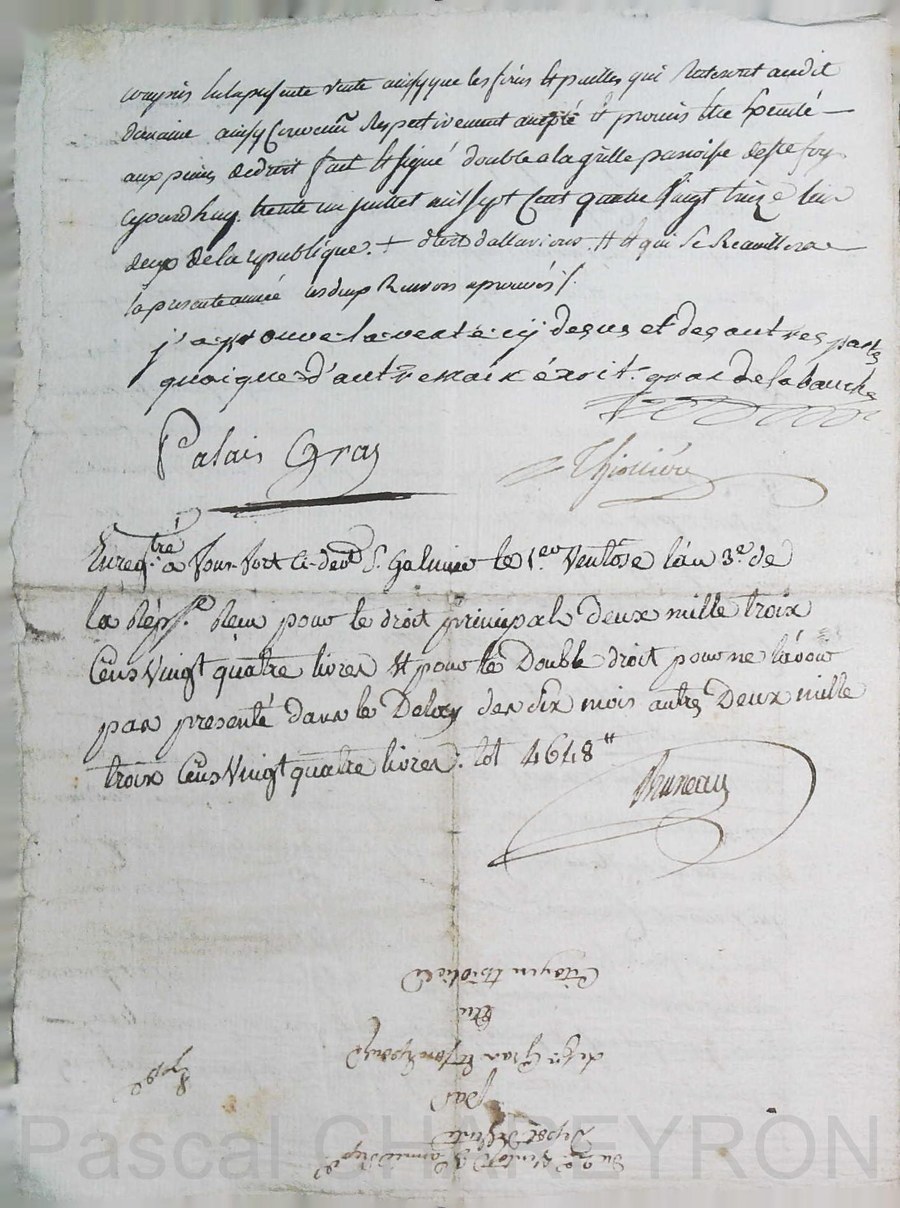 compris la presente vente ainsy que les foins & pailles qui resteront audit
domaine ainsy convenu respectivement accepté & promis être executé
aux peines de droit fait & signé double a la grille paroisse de ste foy
cejourd'huy trente un juillet mil sept cent quatre vingt treize l'an
deux de la republique. + & qui se recueillera
la presente année les deux renvois aprouvés /.
j'aprouve la vente cy desus et des autres parts
quoique d'autre main écrit. gras de labauche
Palais Gras
Thiollière
Enreg.tré à Fons-fort ci-devt St. Galmier le 1.er Ventôse l'an 3.e de
la Rép.e Reçu pour le droit principal deux mille trois
cens vingt quatre livres & pour le Double droit pour ne l'avoir
pas presenté dans le Delay des six mois autres Deux mille
trois cens vingt quatre livres. tot 4648"
Bruneau
Citoyen
Et le
Gras & son Epouse
par
Depot de vente
Du 2e Ventose 3e année Rep.e
Pascal CHAREYRON